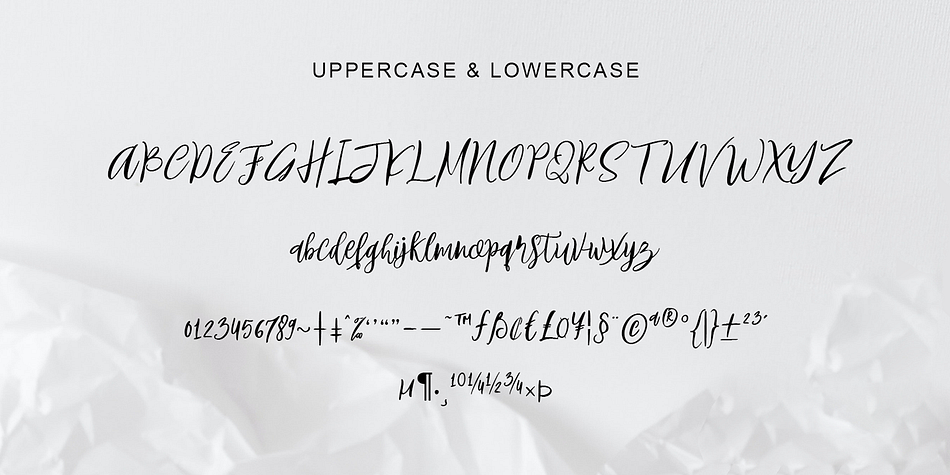 UPPERCASE & LOWERCASE
ABCDEFGHIJKLMNOPQRSTUVWXYZ
abcdefghijklmnopqrstuvwxyz
0123456789~†‡ˆ‰‘’“”–—˜™ƒß¢£¤¥¦§¨©ª®°{|}±²³´
µ¶·¸¹º¼½¾×Þ